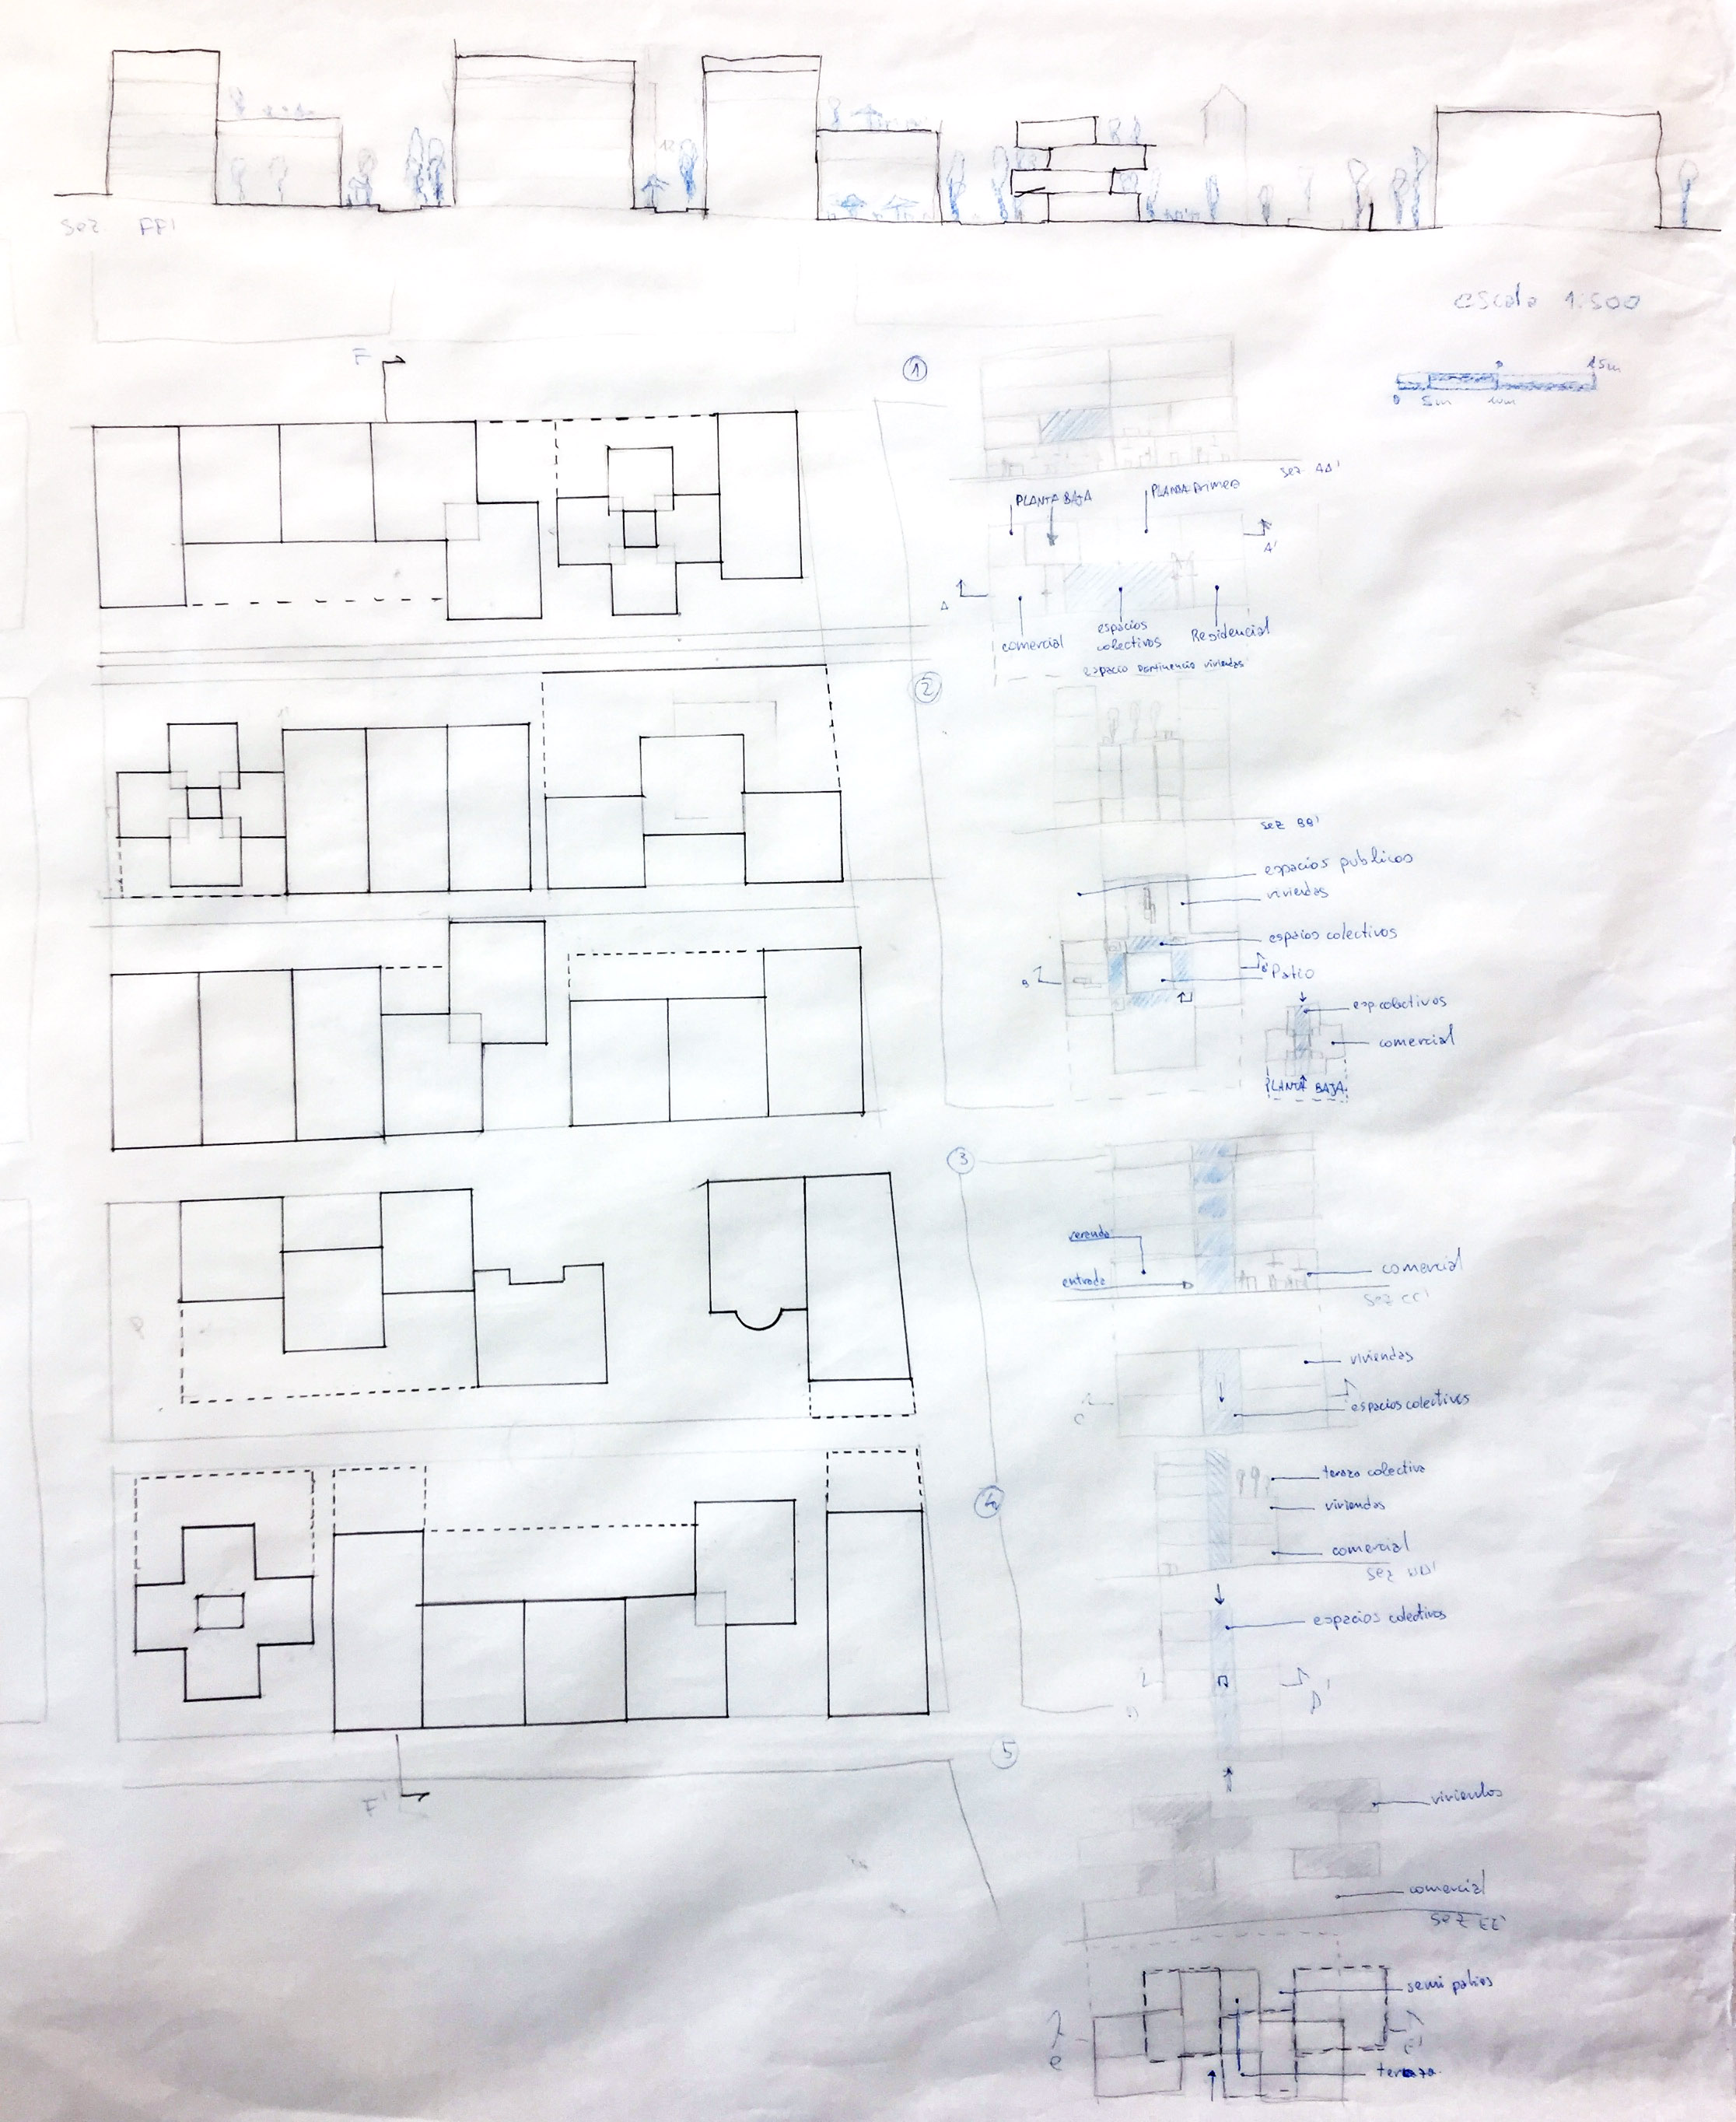 sez FF'
12
escala 1:500
15m
0 5m 10m
F
1
sez AA'
PLANTA BAJA
PLANTA PRIMERA
A'
A
comercial
espacios
colectivos
Residencial
espacio pertinencia viviendas
2
sez BB'
espacios publicos
viviendas
espaios colectivos
B
B'
Patio
esp colectivos
comercial
PLANTA BAJA
3
verenda
entrada
comercial
sez CC'
viviendas
espacios colectivos
C
P
4
teraza colectiva
viviendas
comercial
sez DD'
espacios colectivos
D'
D
5
F'
viviendas
comercial
sez EE'
semi patios
e
E'
teraza